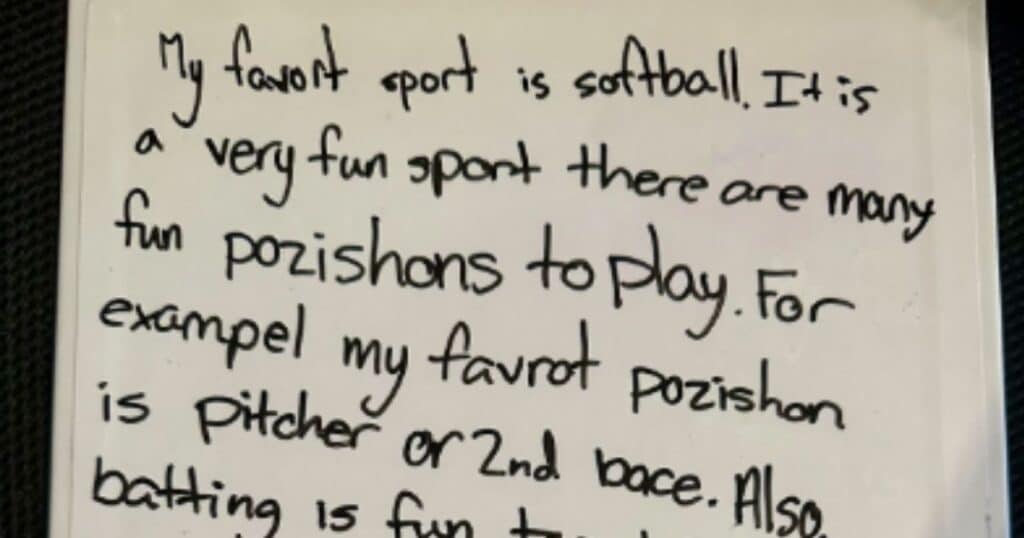 My favort sport is softball. It is
a very fun sport there are many
fun pozishons to play. For
exampel my favrot pozishon
is pitcher or 2nd bace. Also
batting is fun